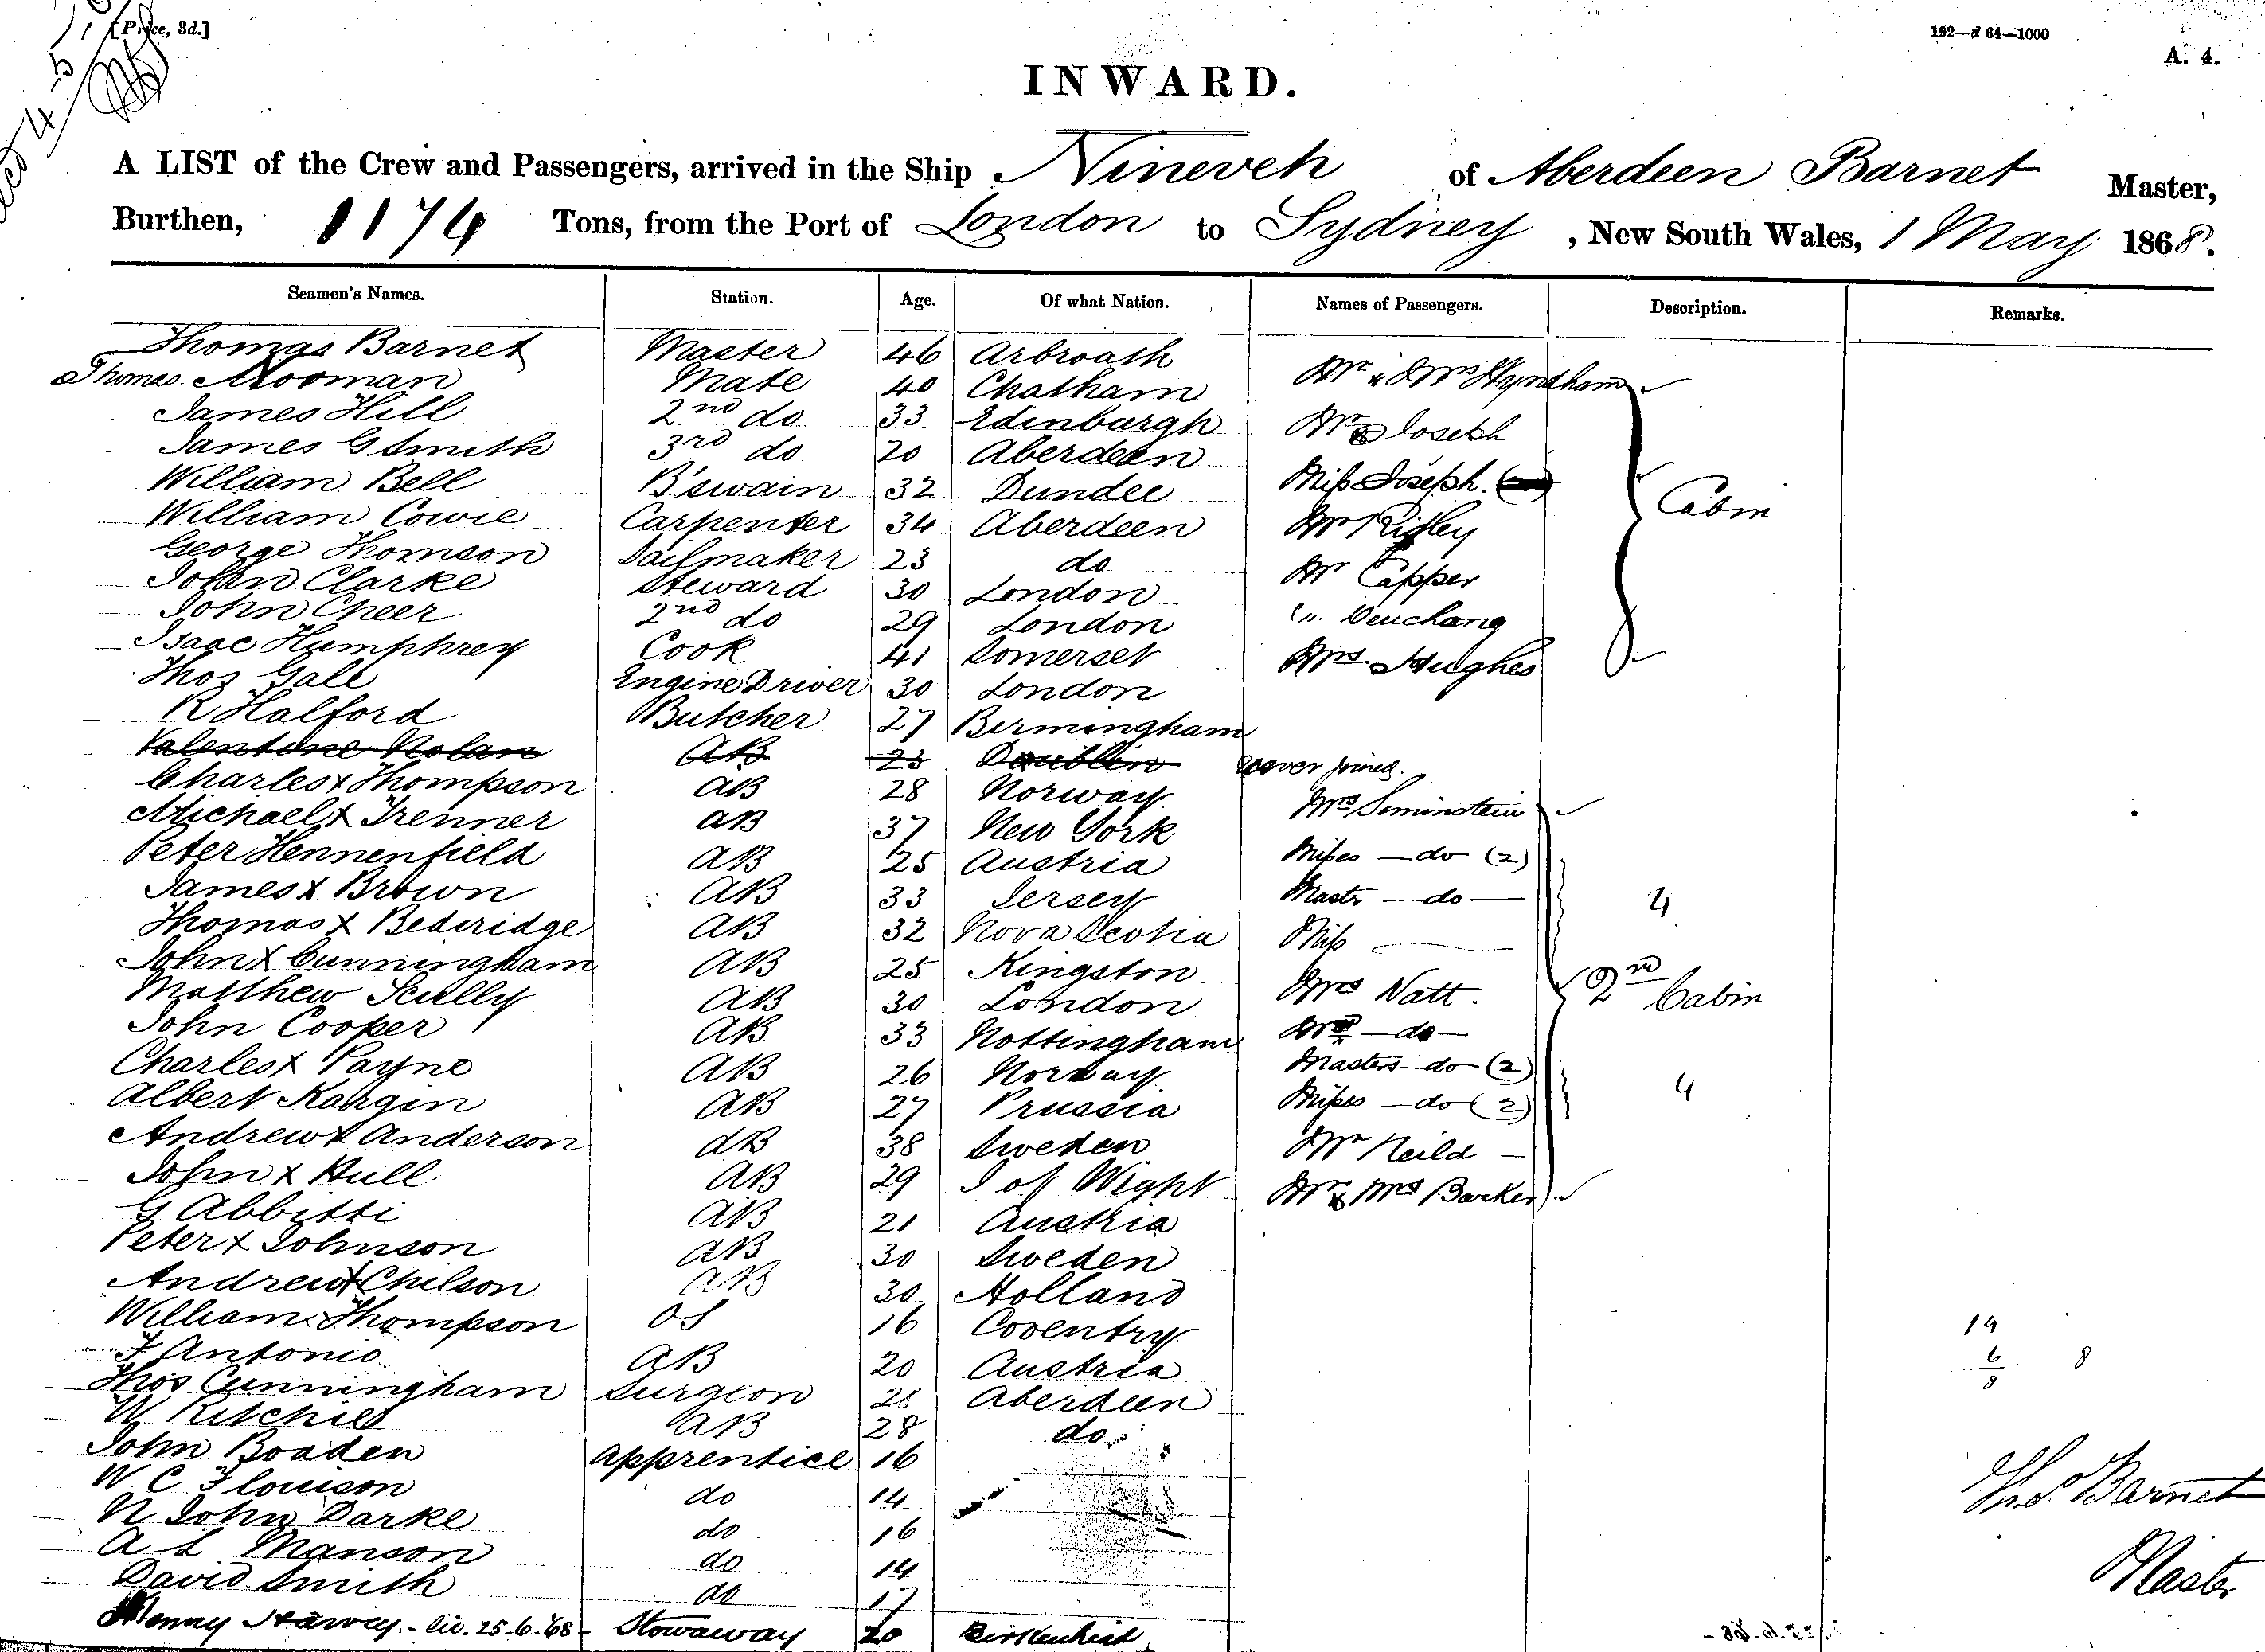 [Price, 3d.]
192—d 64—1000
A. 4.
INWARD.
A LIST of the Crew and Passengers, arrived in the Ship Nineveh of Aberdeen Barnet Master,
Burthen, 1174 Tons, from the Port of London to Sydney, New South Wales, 1 May 1868.
Seamen's Names. Station. Age. Of what Nation. Names of Passengers. Description. Remarks.
Thomas Barnet Master 46 Arbroath
Thomas Mooman Mate 40 Chatham Mr & Mrs Hyndham
James Hill 2nd do 33 Edinburgh Mr Joseph
James G Smith 3rd do 20 Aberdeen
William Bell B'swain 32 Dundee Miss Joseph. Cabin
William Cowie Carpenter 34 Aberdeen Mr Ridley
George Thomson Sailmaker 23 do
John Clarke Steward 30 London Mr Capper
John Cheer 2nd do 29 London " Deuchang
Isaac Humphrey Cook 41 Somerset Mrs Hughes
Thos Gale Engine Driver 30 London
R Halford Butcher 27 Birmingham
Valentine Nolan AB 23 Doublin never joined.
Charles x Thompson AB 28 Norway Mrs Siminstein
Michael x Trenner AB 37 New York
Peter Hennenfield AB 25 Austria Misses — do (2)
James x Brown AB 33 Jersey Mastr — do — 4
Thomas x Bederidge AB 32 Nova Scotia Miss
John x Cunningham AB 25 Kingston
Matthew Scully AB 30 London Mrs Natt. 2nd Cabin
John Cooper AB 33 Nottingham — do —
Charles x Payne AB 26 Norway Masters do (2)
Albert Kargin AB 27 Prussia Misses — do (2) 4
Andrew x Anderson AB 38 Sweden Mr Neild —
John x Hull AB 29 I of Wight Mr & Mrs Barker
G Abbitti AB 21 Austria
Peter x Johnson AB 30 Sweden
Andrew x Chilson AB 30 Holland
William Thompson OS 16 Coventry 14
F Antonio AB 20 Austria 6 8
Thos Cunningham Surgeon Aberdeen 8
W Ritchie AB 28 do
John Boaden Apprentice 16
W C Flouison do 14
N John Darke do 16 Ths. Barnet
A L Manson do 14
David Smith do 17 Master
Henry Harvey - liv. 25-6-'68 - Stowaway 20 Birkenhead